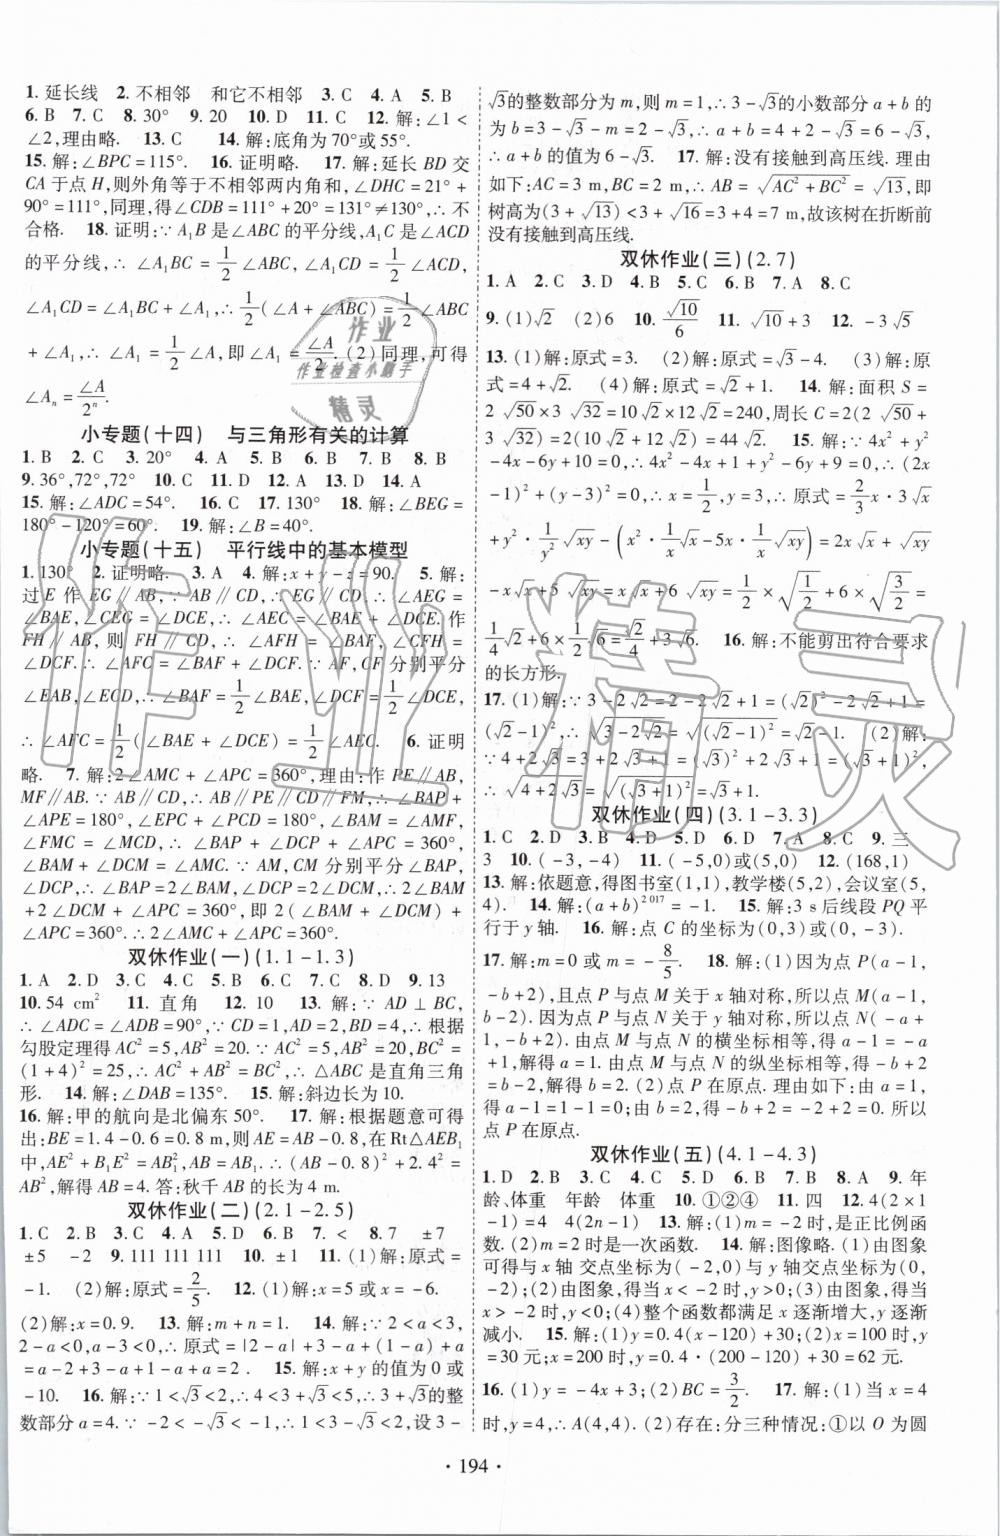 1. 延长线 2. 不相邻 和它不相邻 3. C 4. A 5. B
6. B 7. C 8. 30° 9. 20 10. D 11. C 12. 解:∠1<
∠2,理由略. 13. C 14. 解:底角为70°或55°.
15. 解:∠BPC=115°. 16. 证明略. 17. 解:延长 BD 交
CA 于点 H,则外角等于不相邻两内角和,∠DHC=21°+
90°=111°,同理,得∠CDB=111°+20°=131°≠130°,∴不
合格. 18. 证明:∵A₁B 是∠ABC 的平分线,A₁C 是∠ACD
的平分线,∴∠A₁BC=1/2∠ABC,∠A₁CD=1/2∠ACD,∵
∠A₁CD=∠A₁BC+∠A₁,∴1/2(∠A+∠ABC)=1/2∠ABC
+∠A₁,∴∠A₁=1/2∠A,即∠A₁=∠A/2. (2)同理,可得
∠Aₙ=∠A/2ⁿ.
小专题(十四) 与三角形有关的计算
1. B 2. C 3. 20° 4. A 5. B 6. B 7. B 8. B
9. 36°,72°,72° 10. C 11. D 12. A 13. D 14. A
15. 解:∠ADC=54°. 16. C 17. 130° 18. 解:∠BEG=
180°-120°=60°. 19. 解:∠B=40°.
小专题(十五) 平行线中的基本模型
1. 130° 2. 证明略. 3. A 4. 解:x+y-z=90. 5. 解:
过 E 作 EG∥AB,∵AB∥CD,∴EG∥CD,∴∠AEG=
∠BAE,∠CEG=∠DCE,∴∠AEC=∠BAE+∠DCE. 作
FH∥AB,则 FH∥CD,∴∠AFH=∠BAF,∠CFH=
∠DCF,∴∠AFC=∠BAF+∠DCF. ∵AF,CF 分别平分
∠EAB,∠ECD,∴∠BAF=1/2∠BAE,∠DCF=1/2∠DCE,
∴∠AFC=1/2(∠BAE+∠DCE)=1/2∠AEC. 6. 证明
略. 7. 解:2∠AMC+∠APC=360°,理由:作 PE∥AB,
MF∥AB. ∵AB∥CD,∴AB∥PE∥CD∥FM,∴∠BAP+
∠APE=180°,∠EPC+∠PCD=180°,∠BAM=∠AMF,
∠FMC=∠MCD,∴∠BAP+∠DCP+∠APC=360°,
∠BAM+∠DCM=∠AMC. ∵AM,CM 分别平分∠BAP,
∠DCP,∴∠BAP=2∠BAM,∠DCP=2∠DCM,∴2∠BAM
+2∠DCM+∠APC=360°,即2(∠BAM+∠DCM)+
∠APC=360°. ∴2∠AMC+∠APC=360°.
双休作业(一)(1.1-1.3)
1. A 2. D 3. C 4. C 5. B 6. C 7. C 8. D 9. 13
10. 54 cm² 11. 直角 12. 10 13. 解:∵AD⊥BC,
∴∠ADC=∠ADB=90°,∵CD=1,AD=2,BD=4,∴根据
勾股定理得 AC²=5,AB²=20. ∵AC²+AB²=20,BC²=
(1+4)²=25,∴AC²+AB²=BC²,∴△ABC 是直角三角
形. 14. 解:∠DAB=135°. 15. 解:斜边长为10.
16. 解:甲的航向是北偏东50°. 17. 解:根据题意可得
出:BE=1.4-0.6=0.8 m,则 AE=AB-0.8,在Rt△AEB₁
中,AE²+B₁E²=AB₁²,∵AB₁=AB,∴(AB-0.8)²+2.4²=
AB²,解得 AB=4. 答:秋千 AB 的长为4 m.
双休作业(二)(2.1-2.5)
1. C 2. D 3. C 4. A 5. C 6. B 7. < 8. 7 ±7
±5 -2 9. 111 111 111 10. ±1 11. (1)解:原式=
-1. (2)解:原式=2/5. 12. (1)解:x=5或x=-6.
(2)解:x=0.9. 13. 解:m+n=1. 14. 解:∵2<a<3,
2-a<0,a-3<0,∴原式=|2-a|+3-a+(1-a)+a=
a-2+3-a+1-a+a=2. 15. 解:x+y 的值为0或
-10. 16. 解:∵1<√3<2,∴4<3+√3<5,∴3+√3的整
数部分 a=4. ∵-2<-√3<-1,∴1<3-√3<2,设3-
√3的整数部分为 m,则 m=1,∴3-√3的小数部分 a+b的
为 b=3-√3-m=2-√3,∴a+b=4+2-√3=6-√3,
∴a+b 的值为6-√3. 17. 解:没有接触到高压线. 理由
如下:AC=3 m,BC=2 m,∴AB=√(AC²+BC²)=√13,即
树高为(3+√13)<3+√16=3+4=7 m,故该树在折断前
没有接触到高压线.
双休作业(三)(2.7)
1. A 2. C 3. D 4. B 5. C 6. B 7. A 8. C
9. (1)√2 (2)6 10. √10/6 11. √10+3 12. -3√5
13. (1)解:原式=3. (2)解:原式=√3-4. (3)解:原
式=4+√2. (4)解:原式=√2+1. 14. 解:面积 S=
2√50×3√32=10√2×12√2=240,周长 C=2(2√50+
3√32)=2(10√2+12√2)=44√2. 15. 解:∵4x²+y²
-4x-6y+10=0,∴4x²-4x+1+y²-6y+9=0,∴(2x
-1)²+(y-3)²=0,∴x=1/2,y=3,∴原式=2/3x·3√x
+y²·1/y²√xy-(x²·1/x√x-5x·1/x√xy)=2x√x+√xy
-x√x+5√xy=x√x+6√xy=1/2×√(1/2)+6×√(3/2)=
1/4√2+6×1/2√6=√2/4+3√6. 16. 解:不能剪出符合要求
的长方形.
17. (1)解:∵3-2√2=2-2√2+1=(√2)²-2√2+1=
(√2-1)²,∴√(3-2√2)=√((√2-1)²)=√2-1. (2)解:
∵4+2√3=3+2√3+1=(√3)²+2√3+1=(√3+1)²,
∴√(4+2√3)=√((√3+1)²)=√3+1.
双休作业(四)(3.1-3.3)
1. C 2. D 3. B 4. D 5. D 6. D 7. A 8. C 9. 三
3 10. (-3,-4) 11. (-5,0)或(5,0) 12. (168,1)
13. 解:依题意,得图书室(1,1),教学楼(5,2),会议室(5,
4). 14. 解:(a+b)²⁰¹⁷=-1. 15. 解:3 s 后线段 PQ 平
行于 y 轴. 16. 解:点 C 的坐标为(0,3)或(0,-3).
17. 解:m=0或 m=-8/5. 18. 解:(1)因为点 P(a-1,
-b+2),且点 P 与点 M 关于 x 轴对称,所以点 M(a-1,
b-2). 因为点 P 与点 N 关于 y 轴对称,所以点 N(-a+
1,-b+2). 由点 M 与点 N 的横坐标相等,得 a-1=-a
+1,解得 a=1. 由点 M 与点 N 的纵坐标相等,得-b+2
=b-2,解得 b=2. (2)点 P 在原点. 理由如下:由 a=1,
得 a-1=1-1=0;由 b=2,得-b+2=-2+2=0. 所以
点 P 在原点.
双休作业(五)(4.1-4.3)
1. D 2. B 3. C 4. C 5. D 6. C 7. B 8. A 9. 年
龄、体重 年龄 体重 10. ①②④ 11. 四 12. 4(2×1
-1)=4 4(2n-1) 13. 解:(1)m=-2时,是正比例函
数. (2)m=2时是一次函数. 14. 解:图像略. (1)由图象
可得与 x 轴 交点坐标为(-2,0)与 y 轴交点坐标为(0,
-2);(2)由图象,得当 x<-2时,y>0;(3)由图象,得当
x>-2时,y<0;(4)整个函数都满足 x 逐渐增大,y 逐渐
减小. 15. 解:(1)y=0.4(x-120)+30;(2)x=100时,y
=30元;x=200时,y=0.4×(200-120)+30=62元.
16. (1)y=-4x+3;(2)BC=3/2. 17. 解:(1)当 x=4
时,y=4,∴A(4,4). (2)存在:分三种情况:①以 O 为圆
· 194 ·
作业
作业检查小题手
精灵
作业精灵